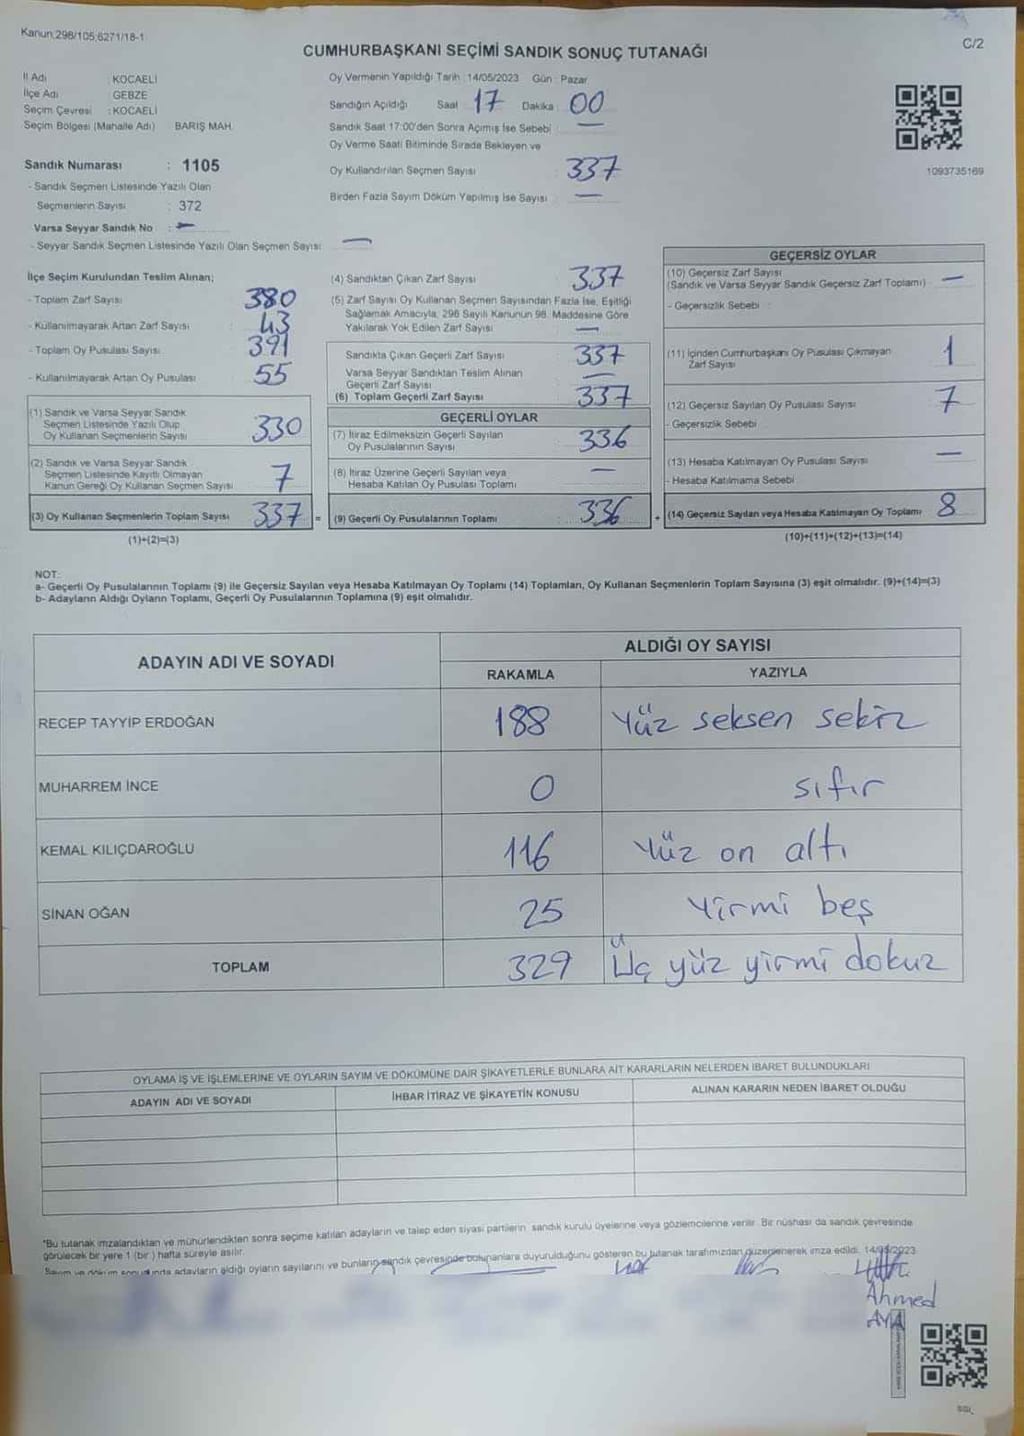 Kanun;298/105;6271/18-1
C/2
CUMHURBAŞKANI SEÇİMİ SANDIK SONUÇ TUTANAĞI
İl Adı : KOCAELİ
İlçe Adı : GEBZE
Seçim Çevresi : KOCAELİ
Seçim Bölgesi (Mahalle Adı) BARIŞ MAH.
Oy Vermenin Yapıldığı Tarih :14/05/2023 Gün : Pazar
Sandığın Açıldığı Saat 17 Dakika : 00
Sandık Saat 17:00'den Sonra Açımış İse Sebebi : —
Oy Verme Saati Bitiminde Sırada Bekleyen ve
Oy Kullandırılan Seçmen Sayısı : 337
Birden Fazla Sayım Döküm Yapılmış İse Sayısı : —
1093735169
Sandık Numarası : 1105
- Sandık Seçmen Listesinde Yazılı Olan
Seçmenlerin Sayısı : 372
Varsa Seyyar Sandık No : —
- Seyyar Sandık Seçmen Listesinde Yazılı Olan Seçmen Sayısı: —
İlçe Seçim Kurulundan Teslim Alınan;
- Toplam Zarf Sayısı : 380
- Kullanılmayarak Artan Zarf Sayısı : 43
- Toplam Oy Pusulası Sayısı : 391
- Kullanılmayarak Artan Oy Pusulası : 55
(1) Sandık ve Varsa Seyyar Sandık
Seçmen Listesinde Yazılı Olup
Oy Kullanan Seçmenlerin Sayısı 330
(2) Sandık ve Varsa Seyyar Sandık
Seçmen Listesinde Kayıtlı Olmayan
Kanun Gereği Oy Kullanan Seçmen Sayısı 7
(3) Oy Kullanan Seçmenlerin Toplam Sayısı 337 =
(1)+(2)=(3)
(4) Sandıktan Çıkan Zarf Sayısı : 337
(5) Zarf Sayısı Oy Kullanan Seçmen Sayısından Fazla İse, Eşitliği
Sağlamak Amacıyla, 298 Sayılı Kanunun 98. Maddesine Göre
Yakılarak Yok Edilen Zarf Sayısı : —
Sandıkta Çıkan Geçerli Zarf Sayısı : 337
Varsa Seyyar Sandıktan Teslim Alınan
Geçerli Zarf Sayısı : —
(6) Toplam Geçerli Zarf Sayısı : 337
GEÇERLİ OYLAR
(7) İtiraz Edilmeksizin Geçerli Sayılan
Oy Pusulalarının Sayısı : 336
(8) İtiraz Üzerine Geçerli Sayılan veya
Hesaba Katılan Oy Pusulası Toplamı —
(9) Geçerli Oy Pusulalarının Toplamı : 336 +
GEÇERSİZ OYLAR
(10) Geçersiz Zarf Sayısı
(Sandık ve Varsa Seyyar Sandık Geçersiz Zarf Toplamı) : —
- Geçersizlik Sebebi :
(11) İçinden Cumhurbaşkanı Oy Pusulası Çıkmayan
Zarf Sayısı 1
(12) Geçersiz Sayılan Oy Pusulası Sayısı : 7
- Geçersizlik Sebebi
(13) Hesaba Katılmayan Oy Pusulası Sayısı —
- Hesaba Katılmama Sebebi
(14) Geçersiz Sayılan veya Hesaba Katılmayan Oy Toplamı 8
(10)+(11)+(12)+(13)=(14)
NOT:
a- Geçerli Oy Pusulalarının Toplamı (9) ile Geçersiz Sayılan veya Hesaba Katılmayan Oy Toplamı (14) Toplamları, Oy Kullanan Seçmenlerin Toplam Sayısına (3) eşit olmalıdır. (9)+(14)=(3)
b- Adayların Aldığı Oyların Toplamı, Geçerli Oy Pusulalarının Toplamına (9) eşit olmalıdır.
ADAYIN ADI VE SOYADI
ALDIĞI OY SAYISI
RAKAMLA YAZIYLA
RECEP TAYYİP ERDOĞAN 188 Yüz seksen sekiz
MUHARREM İNCE 0 sıfır
KEMAL KILIÇDAROĞLU 116 Yüz on altı
SİNAN OĞAN 25 Yirmi beş
TOPLAM 329 Üç yüz yirmi dokuz
OYLAMA İŞ VE İŞLEMLERİNE VE OYLARIN SAYIM VE DÖKÜMÜNE DAİR ŞİKAYETLERLE BUNLARA AİT KARARLARIN NELERDEN İBARET BULUNDUKLARI
ADAYIN ADI VE SOYADI İHBAR İTİRAZ VE ŞİKAYETİN KONUSU ALINAN KARARIN NEDEN İBARET OLDUĞU
*Bu tutanak imzalandıktan ve mühürlendikten sonra seçime katılan adayların ve talep eden siyasi partilerin sandık kurulu üyelerine veya gözlemcilerine verilir. Bir nüshası da sandık çevresinde
görülecek bir yere 1 (bir ) hafta süreyle asılır.
Sayım ve döküm sonucunda adayların aldığı oyların sayılarını ve bunların sandık çevresinde bulunanlara duyurulduğunu gösteren bu tutanak tarafımızdan düzenlenerek imza edildi. 14/05/2023
Ahmed